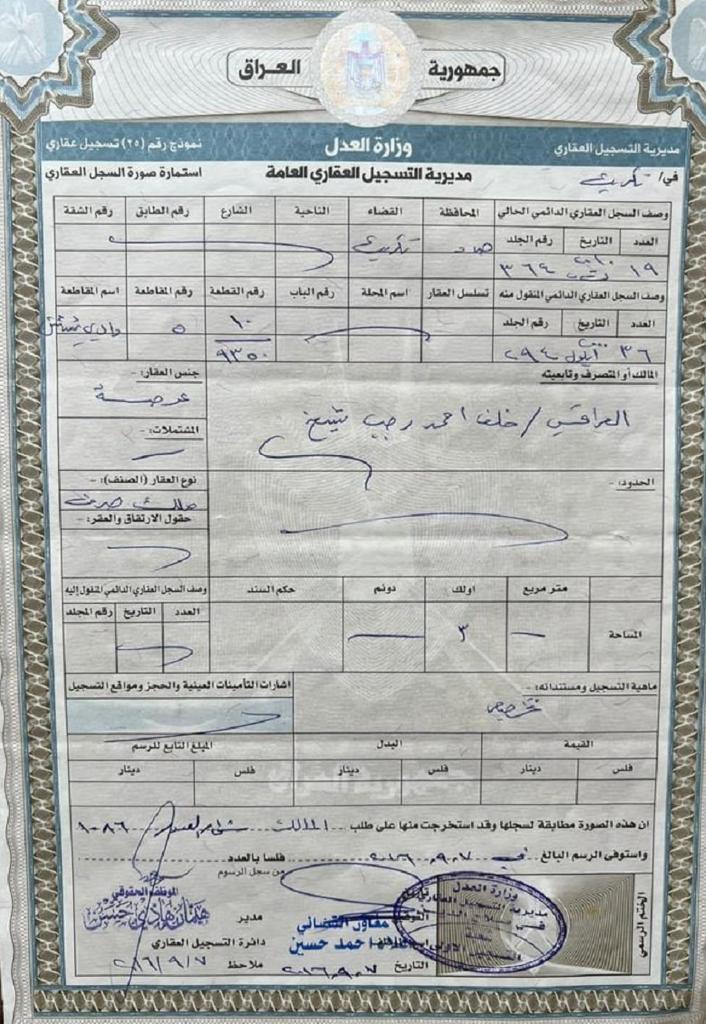 جمهورية العراق
مديرية التسجيل العقاري وزارة العدل نموذج رقم (٢٥) تسجيل عقاري
في/ تكريت مديرية التسجيل العقاري العامة استمارة صورة السجل العقاري
وصف السجل العقاري الدائمي الحالي المحافظة القضاء الناحية الشارع رقم الطابق رقم الشقة
العدد التاريخ رقم الجلد
١٩ ٣٦٤ تكريت
وصف السجل العقاري الدائمي المنقول منه تسلسل العقار اسم المحلة رقم الباب رقم القطعة رقم المقاطعة اسم المقاطعة
العدد التاريخ رقم الجلد
٣٦ ايلول ٢٩٤ ١٠ ٥ وادي شيشين
٩٣٥٠
المالك أو المتصرف وتابعيته جنس العقار: -
عرصة
العراقي / خلف احمد رجب
المشتملات: -
الحدود: - نوع العقار (الصنف): -
ملك صرف
حقوق الارتفاق والعقر: -
متر مربع اولك دونم حكم السند وصف السجل العقاري الدائمي المنقول اليه
العدد التاريخ رقم المجلد
المساحة ٣
ماهية التسجيل ومستنداته: - اشارات التأمينات العينية والحجز ومواقع التسجيل
تخصيص
القيمة البدل المبلغ التابع للرسم
فلس دينار فلس دينار فلس دينار
ان هذه الصورة مطابقة لسجلها وقد استخرجت منها على طلب المالك ١٠٨٦
واستوفى الرسم البالغ في ٢٠١٦.٩.٧ فلسا بالعدد
من سجل الرسوم
الختم الرسمي
وزارة العدل
مديرية التسجيل العقاري
معاون القضائي
احمد حسين
التاريخ ٢٠١٦.٩.٧
الموظف الحقوقي
هادي حسن
مدير
دائرة التسجيل العقاري
ملاحظ ٢٠١٦/٩/٧